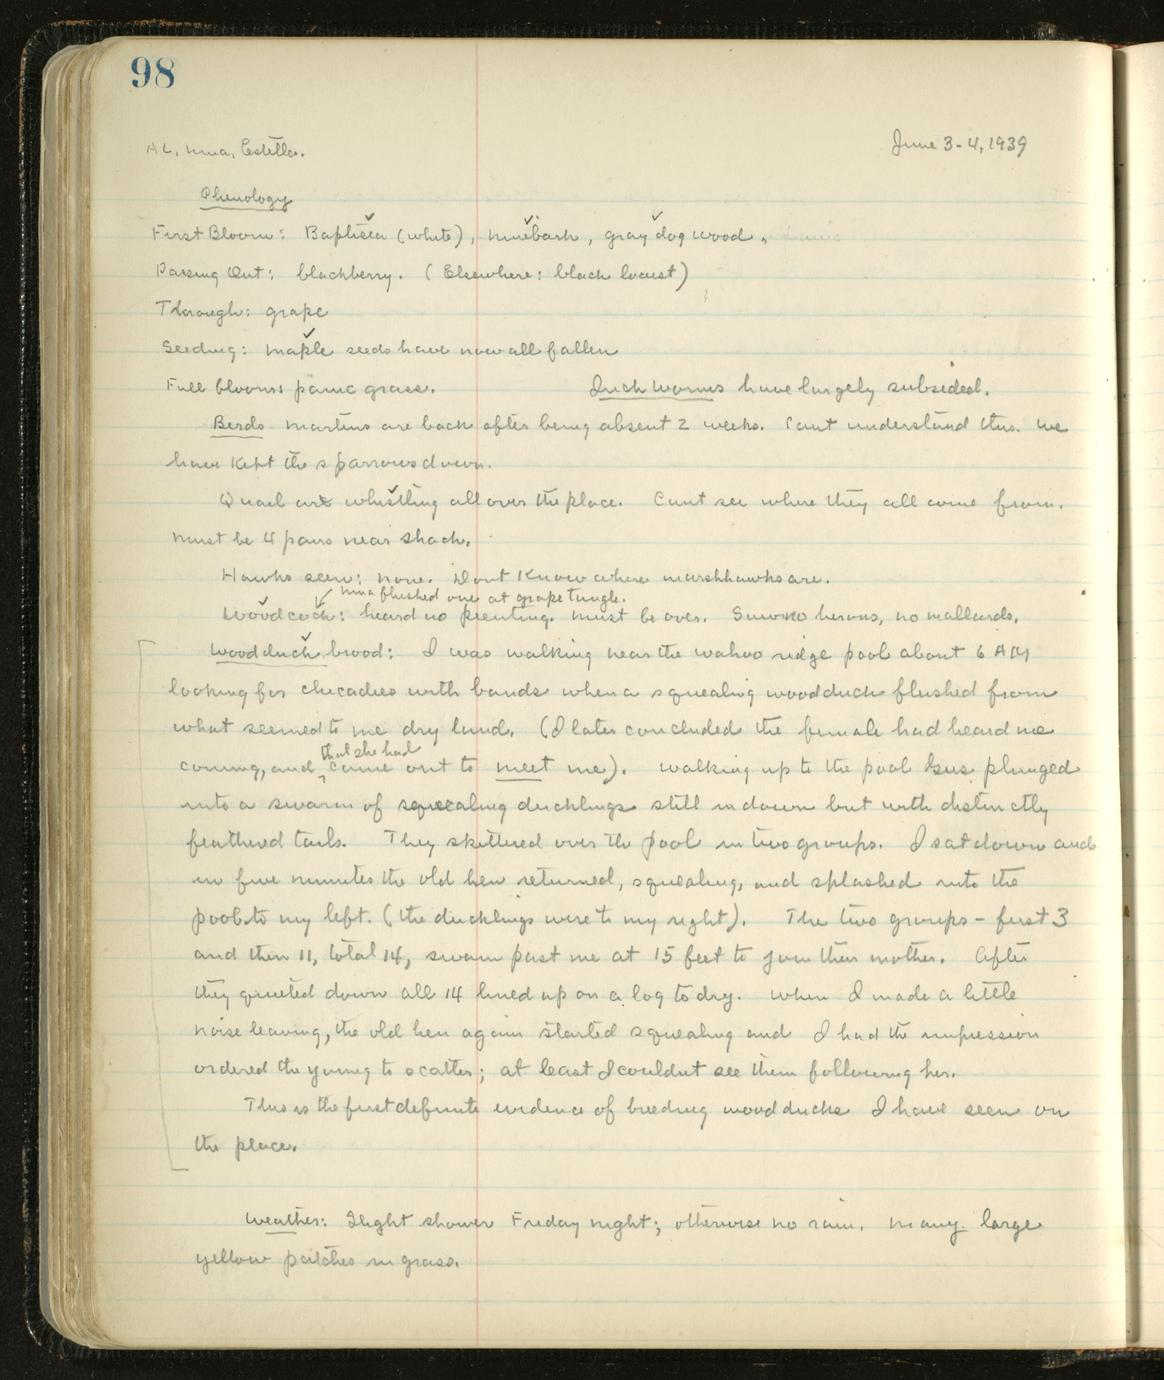 98
AL, Nina, Estella.
June 3-4, 1939
Phenology
First Bloom: Baptisia (white), ninebark, gray dogwood,
Passing Out: blackberry. (Elsewhere: black locust)
Through: grape
Seeding: maple seeds have now all fallen
Full bloom: panic grass.
Inch worms have largely subsided.
Birds Martins are back after being absent 2 weeks. Cant understand this. We
have kept the sparrows down.
Quail are whistling all over the place. Cant see where they all come from.
Must be 4 pairs near shack.
Hawks seen: none. Dont know where marshhawks are.
Nina flushed one at grape tangle.
Woodcock: heard no peenting. Must be over. Saw no herons, no mallards.
Woodduck brood: I was walking near the wahoo ridge pool about 6 AM
looking for chicadees with bands when a squealing woodduck flushed from
what seemed to me dry land. (I later concluded the female had heard me
that she had
coming, and come out to meet me). Walking up to the pool plunged
into a swarm of squealing ducklings still in down but with distinctly
feathered tails. They skittered over the pool in two groups. I sat down and
in five minutes the old hen returned, squealing, and splashed into the
pool to my left. (the ducklings were to my right). The two groups - first 3
and then 11, total 14, swam past me at 15 feet to join their mother. After
they quieted down all 14 lined up on a log to dry. When I made a little
noise leaving, the old hen again started squealing and I had the impression
ordered the young to scatter; at least I couldnt see them following her.
This is the first definite evidence of breeding woodducks I have seen on
the place.
Weather: Slight shower Friday night; otherwise no rain. Many large
yellow patches in grass.